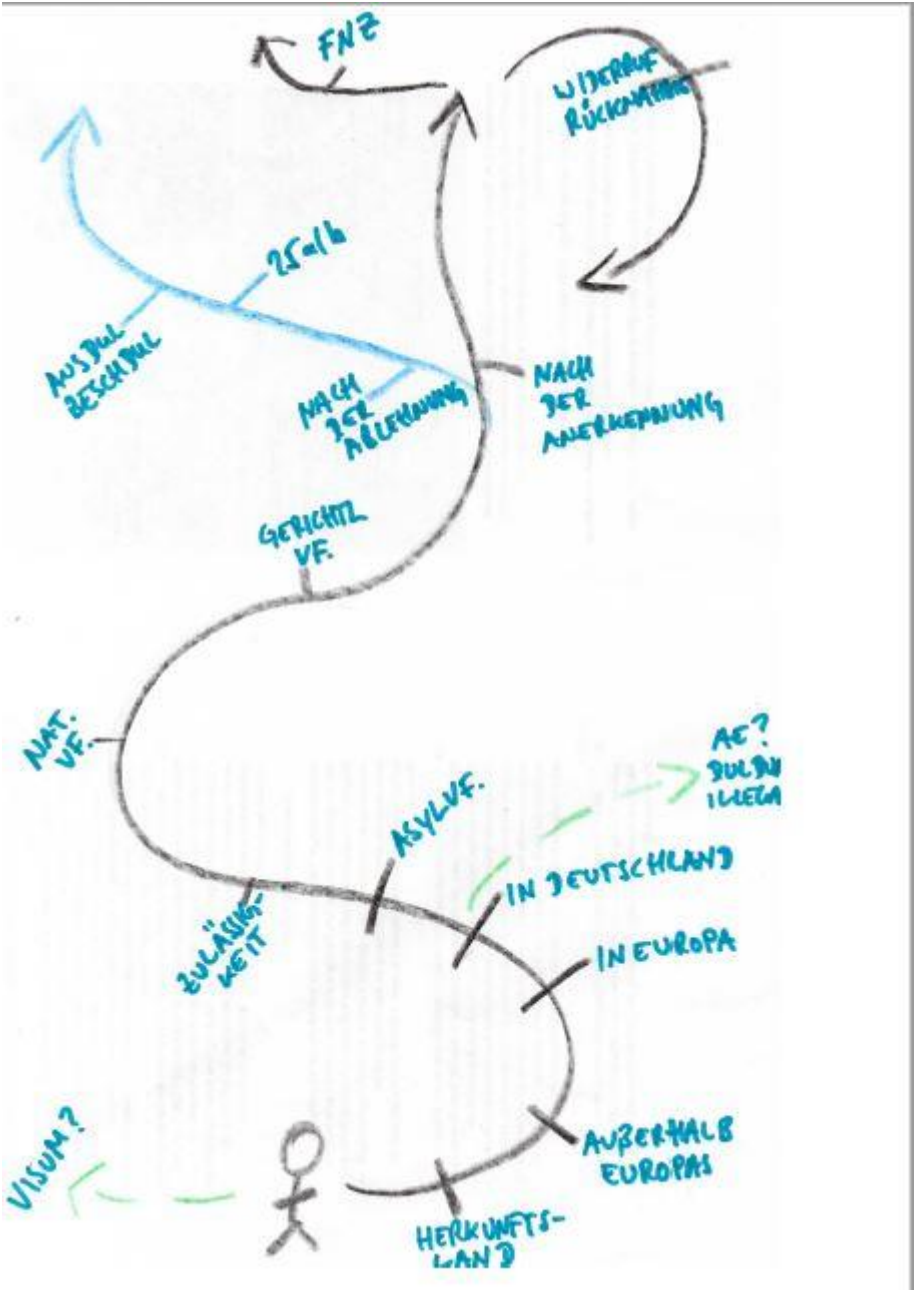 FNZ
WIDERRUF
RÜCKNAHME
25a/b
AUSBUL
BESCHBUL
NACH
DER
ABLEHNUNG
NACH
DER
ANERKENNUNG
GERICHTL
VF.
NAT.
VF.
AE?
ILLEGA
ASYLVF.
IN DEUTSCHLAND
ZULÄSSIG-
KEIT
IN EUROPA
VISUM?
AUßERHALB
EUROPAS
HERKUNFTS-
LAND